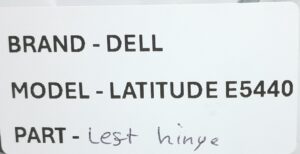 BRAND - DELL
MODEL - LATITUDE E5440
PART - Lest hinge